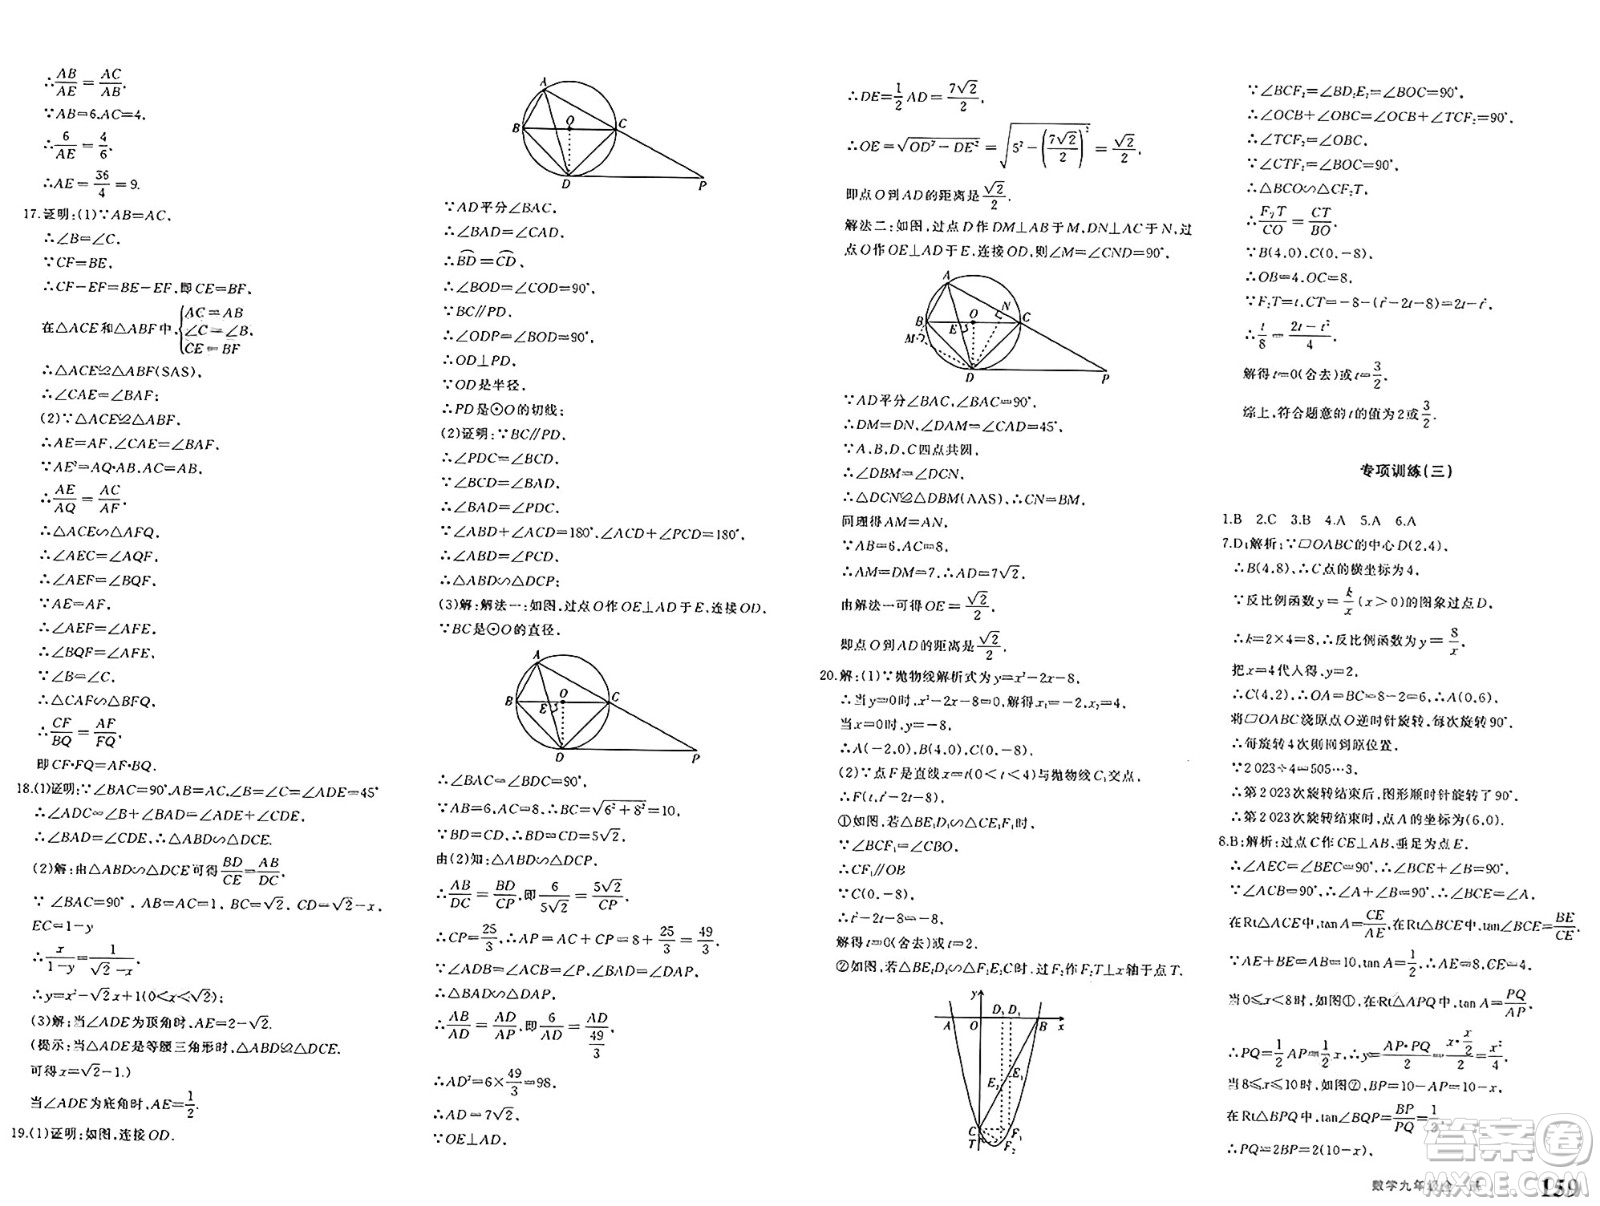 ∴AB/AE=AC/AB.
∵AB=6,AC=4.
∴6/AE=4/6.
∴AE=36/4=9.
17.证明:(1)∵AB=AC,
∴∠B=∠C.
∵CF=BE.
∴CF-EF=BE-EF,即CE=BF.
在△ACE和△ABF中,{AC=AB ∠C=∠B, CE=BF
∴△ACE≌△ABF(SAS),
∴∠CAE=∠BAF;
(2)∵△ACE≌△ABF,
∴AE=AF,∠CAE=∠BAF,
∵AE²=AQ·AB,AC=AB,
∴AE/AQ=AC/AF.
∴△ACE∽△AFQ,
∴∠AEC=∠AQF,
∴∠AEF=∠BQF,
∵AE=AF,
∴∠AEF=∠AFE,
∴∠BQF=∠AFE,
∵∠B=∠C,
∴△CAF∽△BFQ,
∴CF/BQ=AF/FQ,
即CF·FQ=AF·BQ.
18.(1)证明:∵∠BAC=90°,AB=AC,∠B=∠C=∠ADE=45°
∴∠ADC=∠B+∠BAD=∠ADE+∠CDE.
∴∠BAD=∠CDE,∴△ABD∽△DCE.
(2)解:由△ABD∽△DCE可得BD/CE=AB/DC.
∵∠BAC=90°,AB=AC=1,BC=√2,CD=√2-x,
EC=1-y
∴x/(1-y)=1/(√2-x),
∴y=x²-√2x+1(0<x<√2);
(3)解:当∠ADE为顶角时,AE=2-√2.
(提示:当△ADE是等腰三角形时,△ABD≌△DCE.
可得x=√2-1.)
当∠ADE为底角时,AE=1/2.
19.(1)证明:如图,连接OD.
A
B O C
D P
∵AD平分∠BAC,
∴∠BAD=∠CAD,
∴BD=CD,
∴∠BOD=∠COD=90°,
∵BC∥PD,
∴∠ODP=∠BOD=90°,
∴OD⊥PD,
∵OD是半径,
∴PD是⊙O的切线;
(2)证明:∵BC∥PD,
∴∠PDC=∠BCD.
∵∠BCD=∠BAD,
∴∠BAD=∠PDC,
∵∠ABD+∠ACD=180°,∠ACD+∠PCD=180°,
∴∠ABD=∠PCD,
∴△ABD∽△DCP;
(3)解:解法一:如图,过点O作OE⊥AD于E,连接OD,
∵BC是⊙O的直径,
A
B E O C
D P
∴∠BAC=∠BDC=90°,
∵AB=6,AC=8,∴BC=√(6²+8²)=10,
∵BD=CD,∴BD=CD=5√2,
由(2)知:△ABD∽△DCP,
∴AB/DC=BD/CP,即6/5√2=5√2/CP,
∴CP=25/3,∴AP=AC+CP=8+25/3=49/3,
∵∠ADB=∠ACB=∠P,∠BAD=∠DAP,
∴△BAD∽△DAP,
∴AB/AD=AD/AP,即6/AD=AD/(49/3)
∴AD²=6×49/3=98,
∴AD=7√2,
∵OE⊥AD,
∴DE=1/2AD=7√2/2,
∴OE=√(OD²-DE²)=√(5²-(7√2/2)²)=√2/2,
即点O到AD的距离是√2/2.
解法二:如图,过点D作DM⊥AB于M,DN⊥AC于N,过
点O作OE⊥AD于E,连接OD,则∠M=∠CND=90°,
A
B O N C
M E
D P
∵AD平分∠BAC,∠BAC=90°,
∴DM=DN,∠DAM=∠CAD=45°,
∵A,B,D,C四点共圆,
∴∠DBM=∠DCN,
∴△DCN≌△DBM(AAS),∴CN=BM,
同理得AM=AN,
∵AB=6,AC=8,
∴AM=DM=7,∴AD=7√2,
由解法一可得OE=√2/2,
即点O到AD的距离是√2/2.
20.解:(1)∵抛物线解析式为y=x²-2x-8,
∴当y=0时,x²-2x-8=0解得x₁=-2,x₂=4
当x=0时,y=-8,
∴A(-2,0),B(4,0),C(0,-8);
(2)∵点F是直线x=t(0<t<4)与抛物线C₁交点,
∴F(t,t²-2t-8)
①如图,若△BE₁D₁∽△CE₁F₁时,
∵∠BCF₁=∠CBO,
∴CF₁∥OB
∵C(0,-8),
∴t²-2t-8=-8,
解得t=0(舍去)或t=2
②如图,若△BE₂D₂∽△F₂E₂C时,过F₂作F₂T⊥x轴于点T.
y
A O D₂ D₁ B x
E₂ E₁
C F₁
T F₂
∵∠BCF₂=∠BD₂E₂=∠BOC=90°,
∴∠OCB+∠OBC=∠OCB+∠TCF₂=90°,
∴∠TCF₂=∠OBC,
∵∠CTF₂=∠BOC=90°,
∴△BCO∽△CF₂T,
∴F₂T/CO=CT/BO
∵B(4,0),C(0,-8),
∴OB=4,OC=8,
∵F₂T=t,CT=-8-(t²-2t-8)=2t-t²,
∴t/8=(2t-t²)/4,
解得t=0(舍去)或t=3/2,
综上,符合题意的t的值为2或3/2.
专项训练(三)
1.B 2.C 3.B 4.A 5.A 6.A
7.D;解析:∵□OABC的中心D(2,4),
∴B(4,8),∴C点的横坐标为4,
∵反比例函数y=k/x(x>0)的图象过点D,
∴k=2×4=8,∴反比例函数y=8/x,
把x=4代入得,y=2,
∴C(4,2),∴OA=BC=8-2=6,∴A(0,6),
将□OABC绕原点O逆时针旋转,每次旋转90°,
∴每旋转4次则回到原位置,
∵2 023÷4=505…3,
∴第2 023次旋转结束后,图形顺时针旋转了90°,
∴第2 023次旋转结束时,点A的坐标为(6,0).
8.B;解析:过点C作CE⊥AB,垂足为点E,
∴∠AEC=∠BEC=90°,
∵∠ACB=90°,∴∠A+∠B=90°,∴∠BCE=∠A,
在Rt△ACE中,tanA=CE/AE,在Rt△BCE中,tan∠BCE=BE/CE,
∵AE+BE=AB=10,tanA=1/2,∴CE=4,
当0≤x<8时,如图①,在Rt△APQ中,tanA=PQ/AP,
∴PQ=1/2AP=1/2x,∴y=AP·PQ/2=x·x/2/2=x²/4,
当8≤x≤10时,如图②,BP=10-AP=10-x,
在Rt△BPQ中,tan∠BQP=BP/PQ=1/2,
∴PQ=2BP=2(10-x).
数学九年级全一册
159
答案圈
MXQE.COM